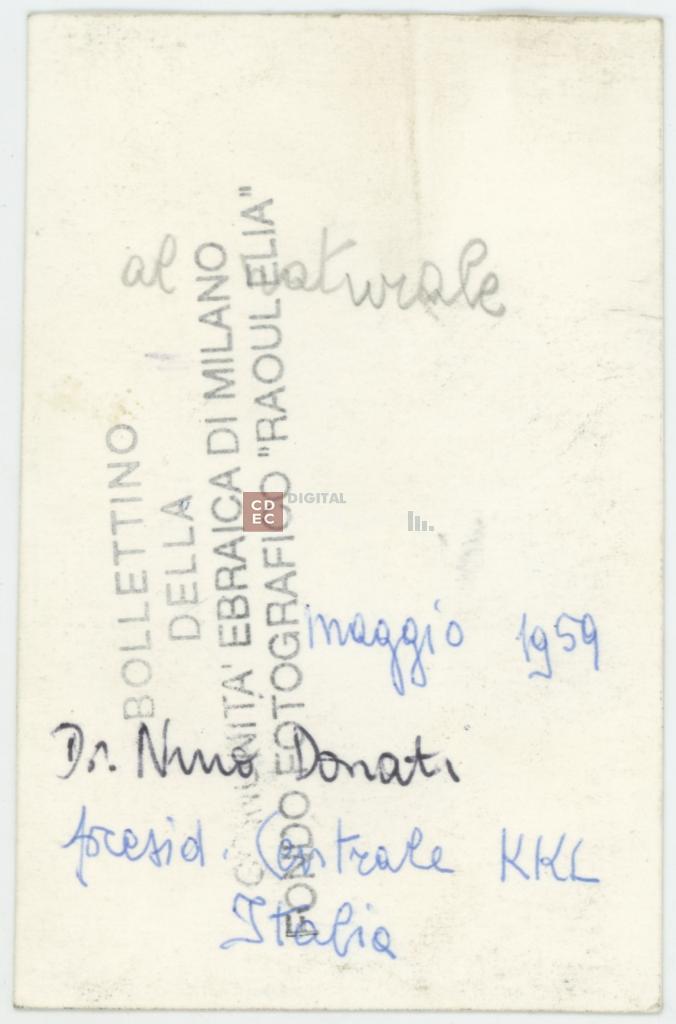 al naturale
BOLLETTINO
DELLA
COMUNITA' EBRAICA DI MILANO
FONDO FOTOGRAFICO "RAOUL ELIA"
CD
EC
DIGITAL
maggio 1959
Dr. Nino Donati
presid. Centrale KKL
Italia